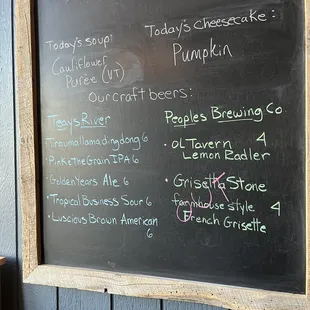 Today's soup:
Cauliflower
Purée (VT)
Today's Cheesecake:
Pumpkin
Our craft beers:
Teays River
· Tiramallamadingdong 6
· Pink the Grain IPA 6
· Golden Years Ale 6
· Tropical Business Sour 6
· Luscious Brown American
6
Peoples Brewing Co
· OL Tavern 4
Lemon Radler
· Grisetta Stone
farmhouse style 4
French Grisette